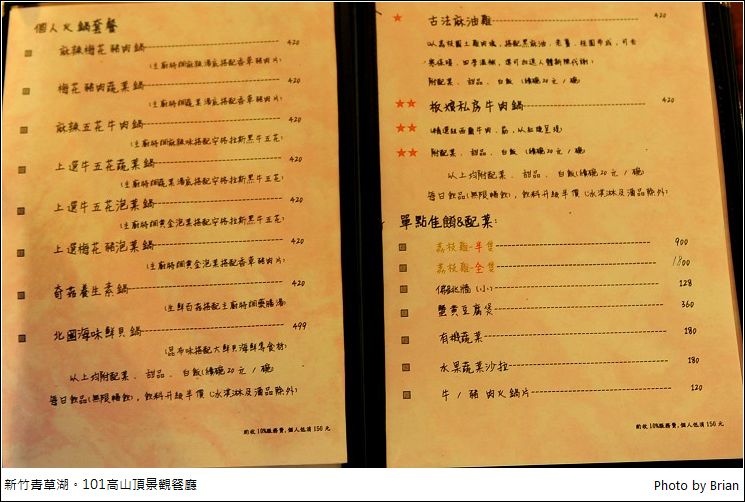 個人火鍋套餐
麻辣梅花豬肉鍋 420
(主廚特調麻辣湯底搭配香草豬肉片)
梅花豬肉蔬菜鍋 420
(主廚特調蔬菜湯底搭配香草豬肉片)
麻辣五花牛肉鍋 420
(主廚特調麻辣味搭配安格拉斯黑牛五花)
上選牛五花蔬菜鍋 420
(主廚特調蔬菜湯底搭配安格拉斯黑牛五花)
上選牛五花泡菜鍋 420
(主廚特調黃金泡菜搭配安格拉斯黑牛五花)
上選梅花豬泡菜鍋 420
(主廚特調黃金泡菜搭配香草豬肉片)
奇菇養生素鍋 420
(生鮮百菇搭配主廚特調藥膳湯)
北國海味鮮貝鍋 499
(昆布味搭配大鮮貝海鮮等食材)
以上均附配菜、甜品、白飯(續碗20元/碗)
每日飲品(無限暢飲),飲料升級半價(冰淇淋及酒品除外)
酌收10%服務費,個人低消150元
★ 古法麻油雞 420
以烏骨土雞肉塊,搭配黑麻油、老薑、桂圓而成,可去
附配菜、甜品、白飯(續碗20元/碗)
★★ 板燒私房牛肉鍋 420
★★ (精選紐西蘭牛肉、筋,以紅燒呈現)
★★ 附配菜、甜品、白飯(續碗20元/碗)
以上均附配菜、甜品、白飯(續碗20元/碗)
每日飲品(無限暢飲),飲料升級半價(冰淇淋及酒品除外)
單點佳餚&配菜:
荔枝雞-半隻 900
荔枝雞-全隻 1800
佛跳牆(小) 128
蟹黃豆腐煲 360
有機蔬菜 180
水果蔬菜沙拉 180
牛/豬肉火鍋片 120
酌收10%服務費,個人低消150元
新竹青草湖。101高山頂景觀餐廳
Photo by Brian